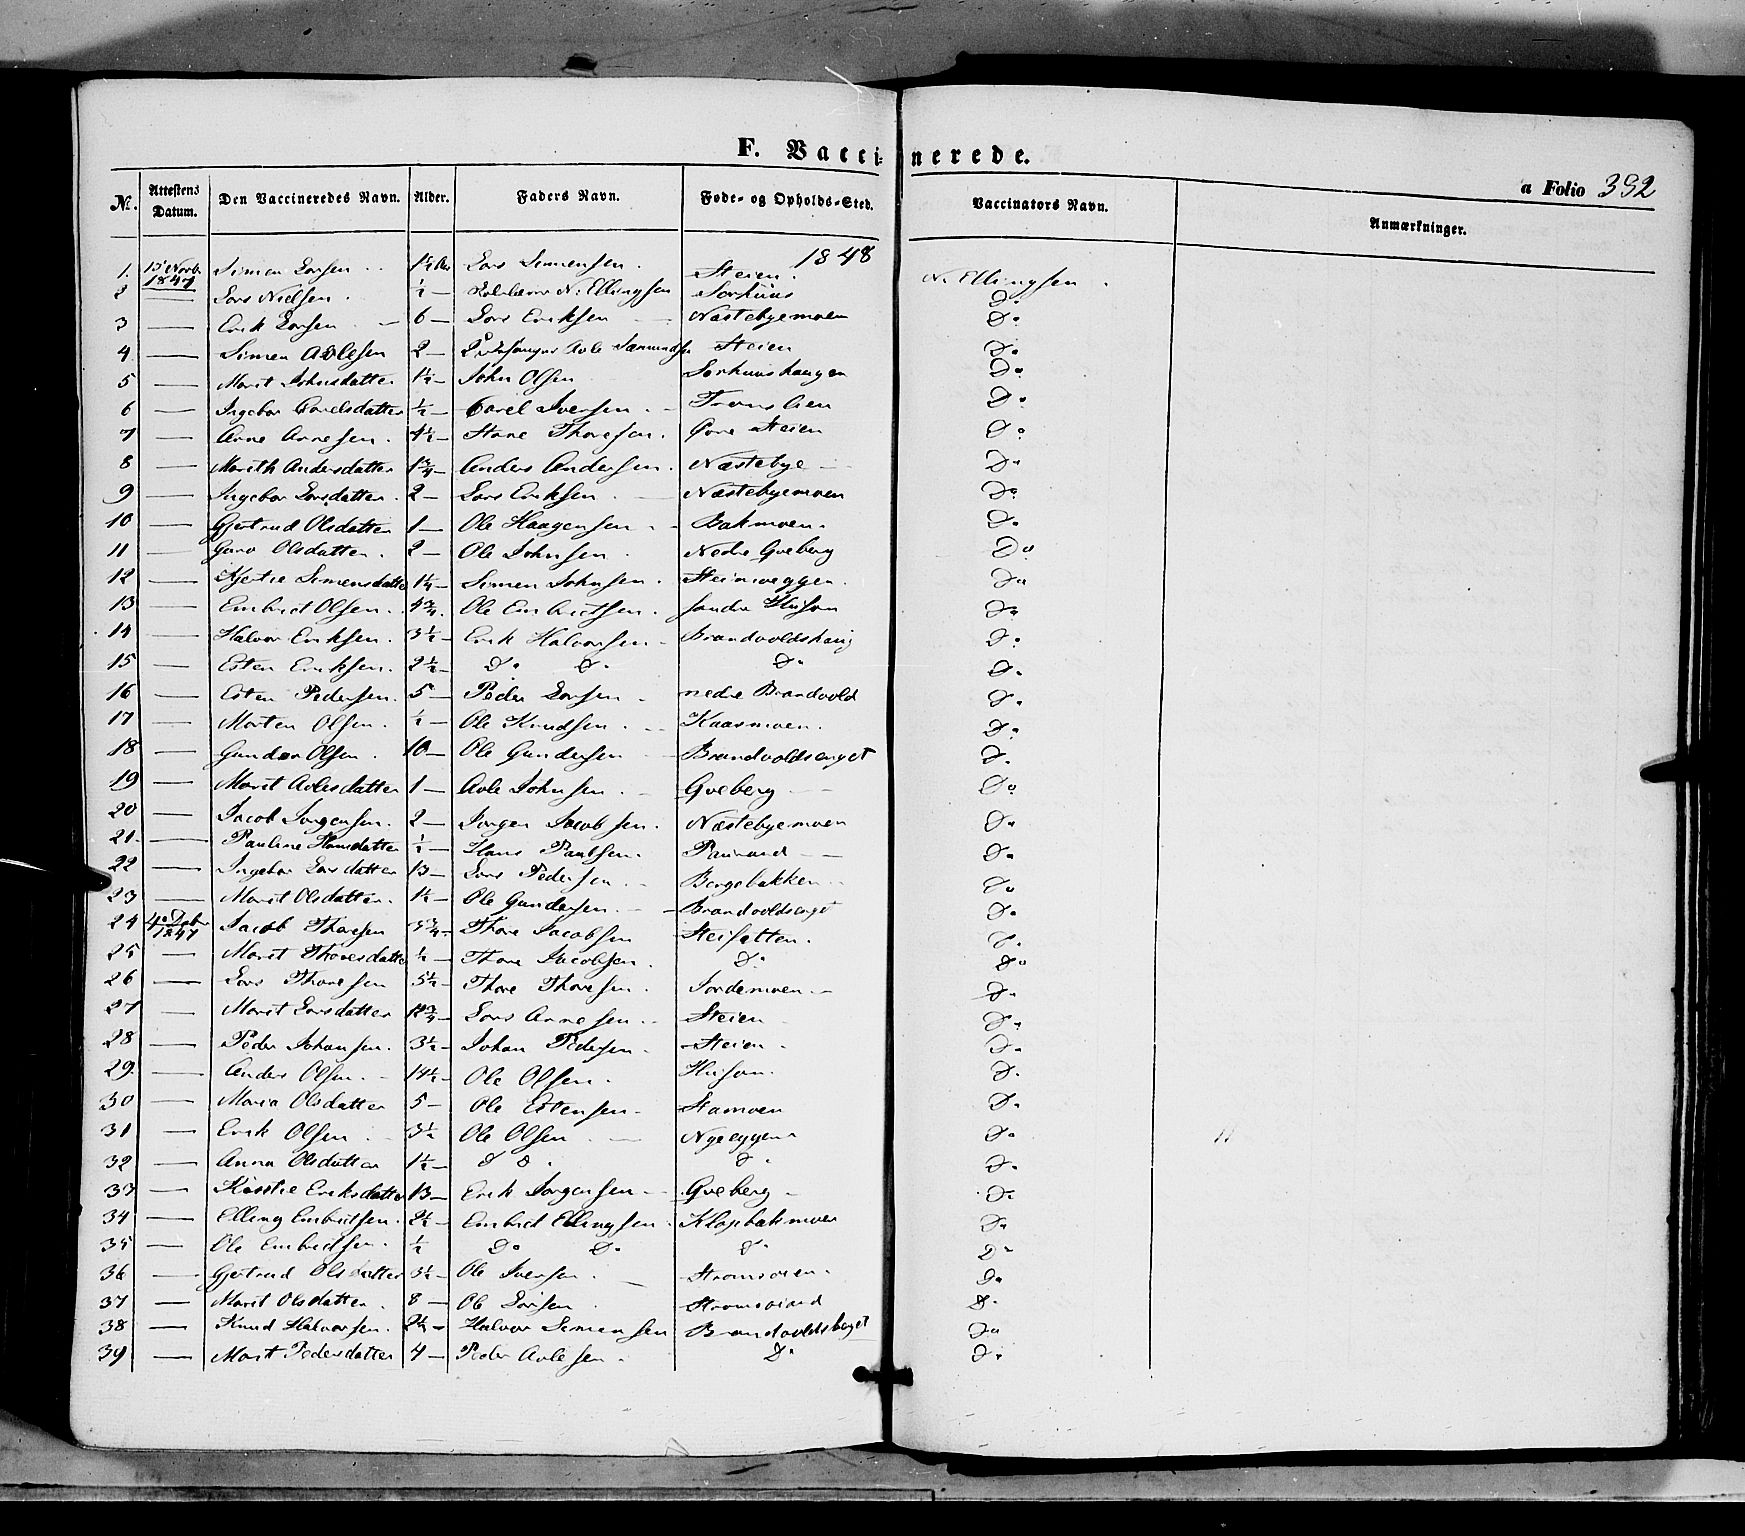 F. Vaccinerede.
a Folio 392
No. Attestens Datum. Den Vaccineredes Navn. Alder. Faders Navn. Føde- og Opholds-Sted. Vaccinators Navn. Anmærkninger.
1848
1. 15 Novb. 1847 Simen Larsen 1½ Aar Lars Simensen Steien. N. Ellingsen
2 — Lars Nielsen ½ — N. Ellingsen Sorhuus Do
3 — Erik Larsen 6 — Lars Eriksen Næstebyemoen Do
4 — Simen Avlesen 2 — Avle Steien Do
5 — Marit Johnsdatter 1½ — John Olsen Sorhuushaugen Do
6 — Ingebor Carelsdatter ½ — Carel Iversen Tronslien Do
7 — Arne Arnesen 4½ — Thoresen Øvre Steien Do
8 — Marith Andersdatter 1¾ — Anders Andersen Næstebye Do
9 — Ingebor Larsdatter 2 — Lars Eriksen Næstebyemoen Do
10 — Gjertrud Olsdatter 1 — Ole Haagensen Bakmoen Do
11 — Guro Olsdatter 2 — Ole Johnsen Nedre Gveberg Do
12 — Kjertie Simensdatter 1¼ — Simen Johnsen Steinveggen Do
13 — Embret Olsen 4¾ Ole Embretsen søndre Husom Do
14 — Halvor Eriksen 3½ — Erik Halvorsen Brandvoldshaug Do
15 — Esten Eriksen 2½ — Do Do Do Do
16 — Esten Pedersen 5 — Peder Larsen nedre Brandvold Do
17 — Morten Olsen ½ — Ole Knudsen Kaasmoen Do
18 — Gunder Olsen 10 — Ole Gundersen Brandvoldsenget Do
19 — Marit Avlesdatter 1 — Avle Johnsen Gveberg Do
20 — Jacob Jorgensen 2 — Jorgen Jacobsen Næstebyemoen Do
21 — Pauline Hansdatter ½ — Hans Paulsen Do
22 — Ingebor Larsdatter 13 — Lars Pedersen Bergebakken Do
23 — Marit Olsdatter 1½ — Ole Gundersen Brandvoldsenget Do
24 4 Dcbr 1847 Jacob Thoresen 3¾ Thore Jacobsen Steisetten Do
25 — Marit Thoresdatter ½ — Thore Jacobsen Do Do
26 — Lars Thoresen 5½ — Thore Thoresen Jordemoen Do
27 — Marit Larsdatter 12¾ Lars Arnesen Steien Do
28 — Peder Johansen 3½ — Johan Pedersen Steien Do
29 — Anders Olsen 14½ — Ole Olsen Husom Do
30 — Maria Olsdatter 5 — Ole Estensen Stamoen Do
31 — Erik Olsen 3½ Ole Olsen Nyeeggen Do
32 — Anna Olsdatter 1½ — D D D Do
33 — Kirstie Eriksdatter 13 — Erik Jorgensen Gveberg Do
34 — Elling Embretsen 2½ — Embret Ellingsen Klopbakmoen Do
35 — Ole Embretsen ½ Do Do Do Do
36 — Gjertrud Olsdatter 3½ — Ole Iversen Stromoien Do
37 — Marit Olsdatter 8 — Ole Larsen Do
38 — Knud Halvorsen 2½ — Halvor Simensen Do
39 — Marit Pedersdatter 4 — Peder Avlesen Do Do